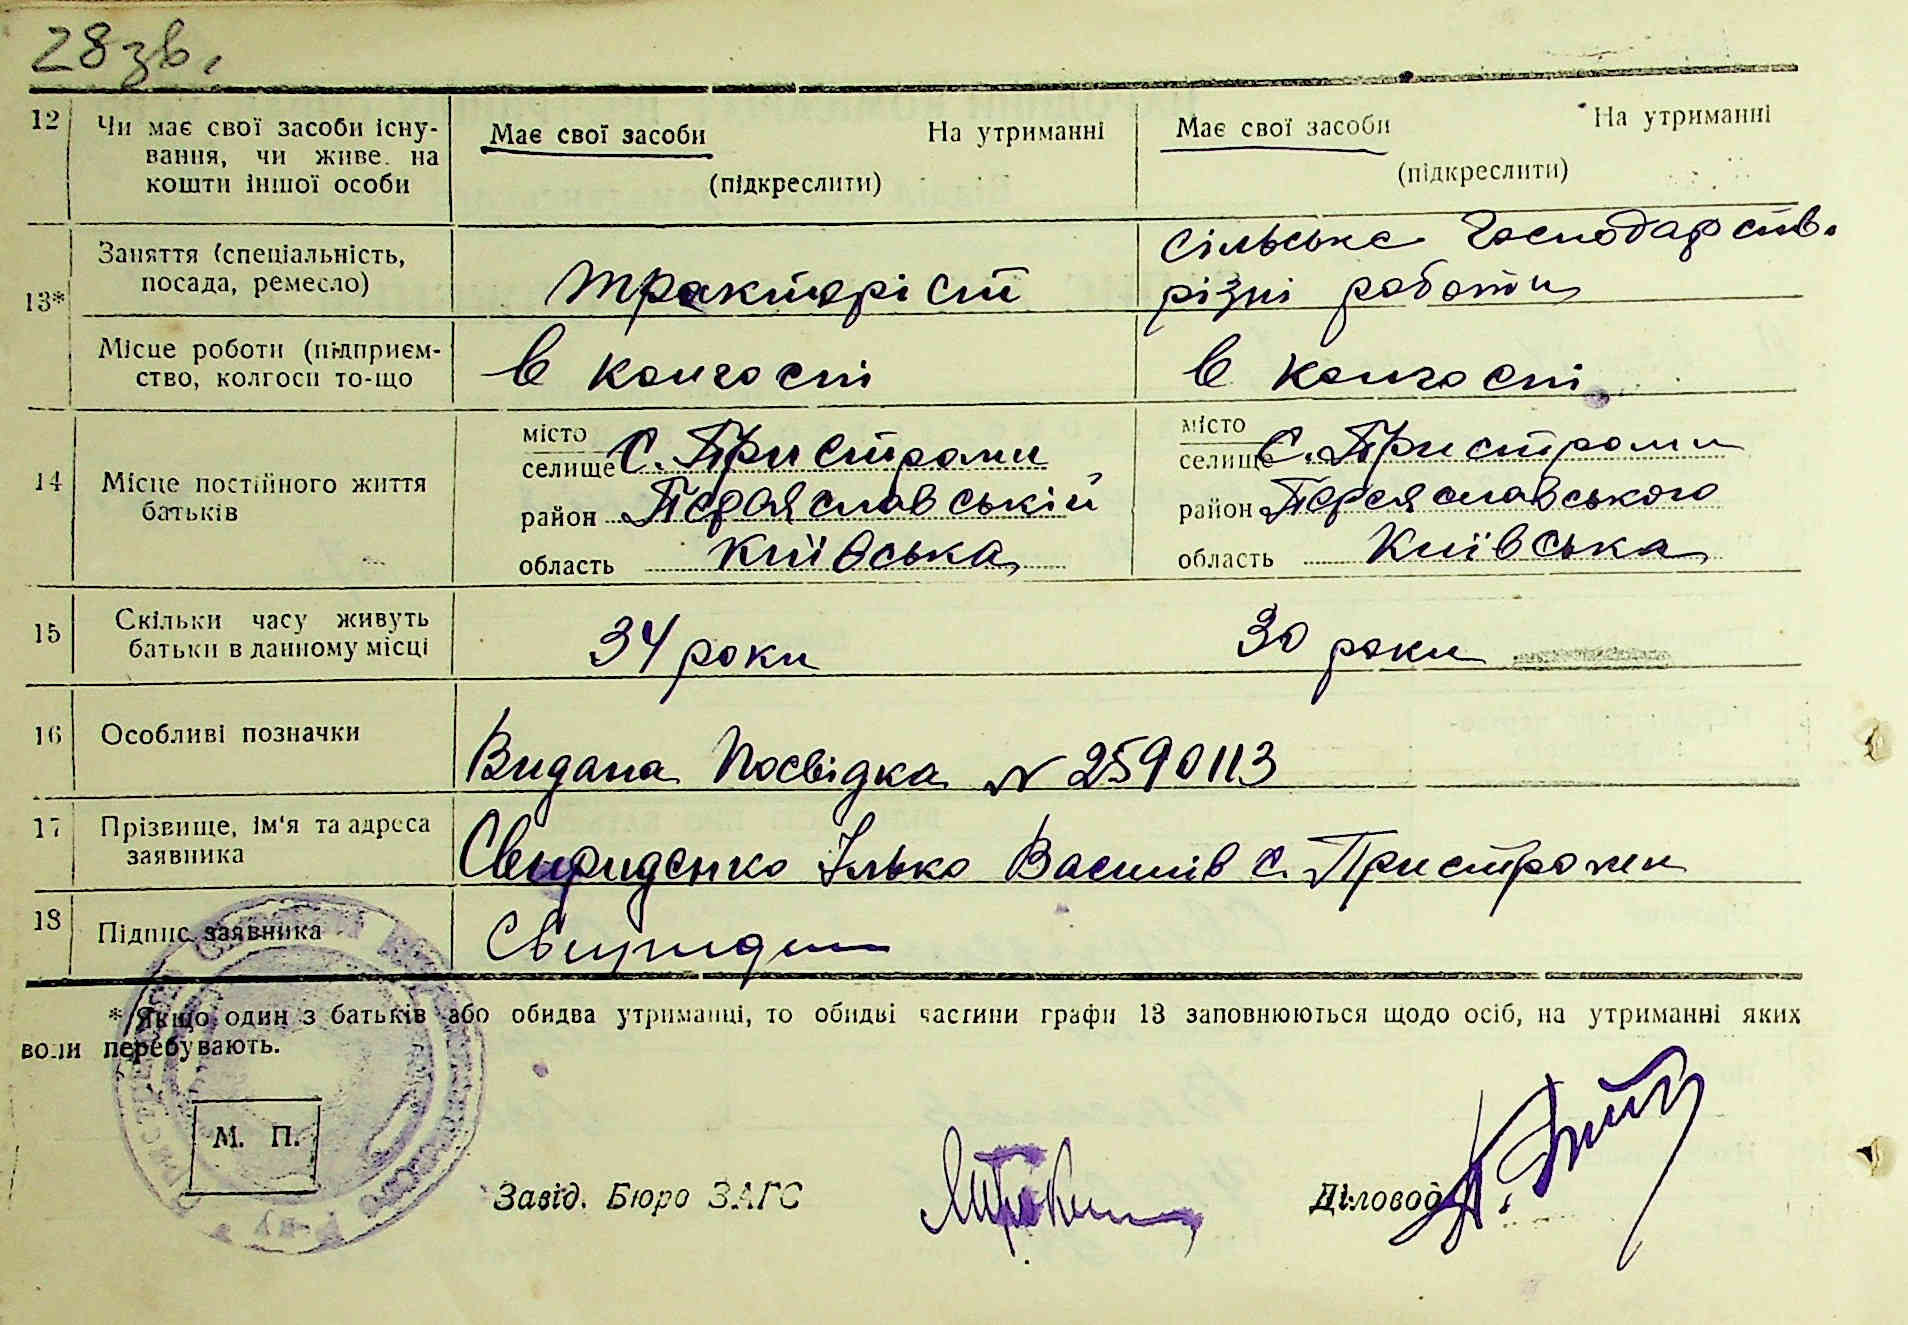 28 зв.
12 Чи має свої засоби існу-
вання, чи живе на
кошти іншої особи
Має свої засоби На утриманні
(підкреслити)
Має свої засоби На утриманні
(підкреслити)
13*
Заняття (спеціальність,
посада, ремесло)
тракторіст
сільське господарств.
різні роботи
Місце роботи (підприєм-
ство, колгосп то-що
в колгоспі
в колгоспі
14 Місце постійного життя
батьків
місто
селище с. Пристроми
район Переяславській
область Київська
місто
селище с. Пристроми
район Переяславського
область Київська
15 Скільки часу живуть
батьки в данному місці
34 роки
30 роки
16 Особливі позначки
Видана Посвідка № 2590113
17 Прізвище, ім'я та адреса
заявника
Свириденко Ілько Василів с. Пристроми
18 Підпис заявника
Свириден
* Якщо один з батьків або обидва утриманці, то обидві частини графи 13 заповнюються щодо осіб, на утриманні яких
вони перебувають.
М. П.
Завід. Бюро ЗАГС
Діловод